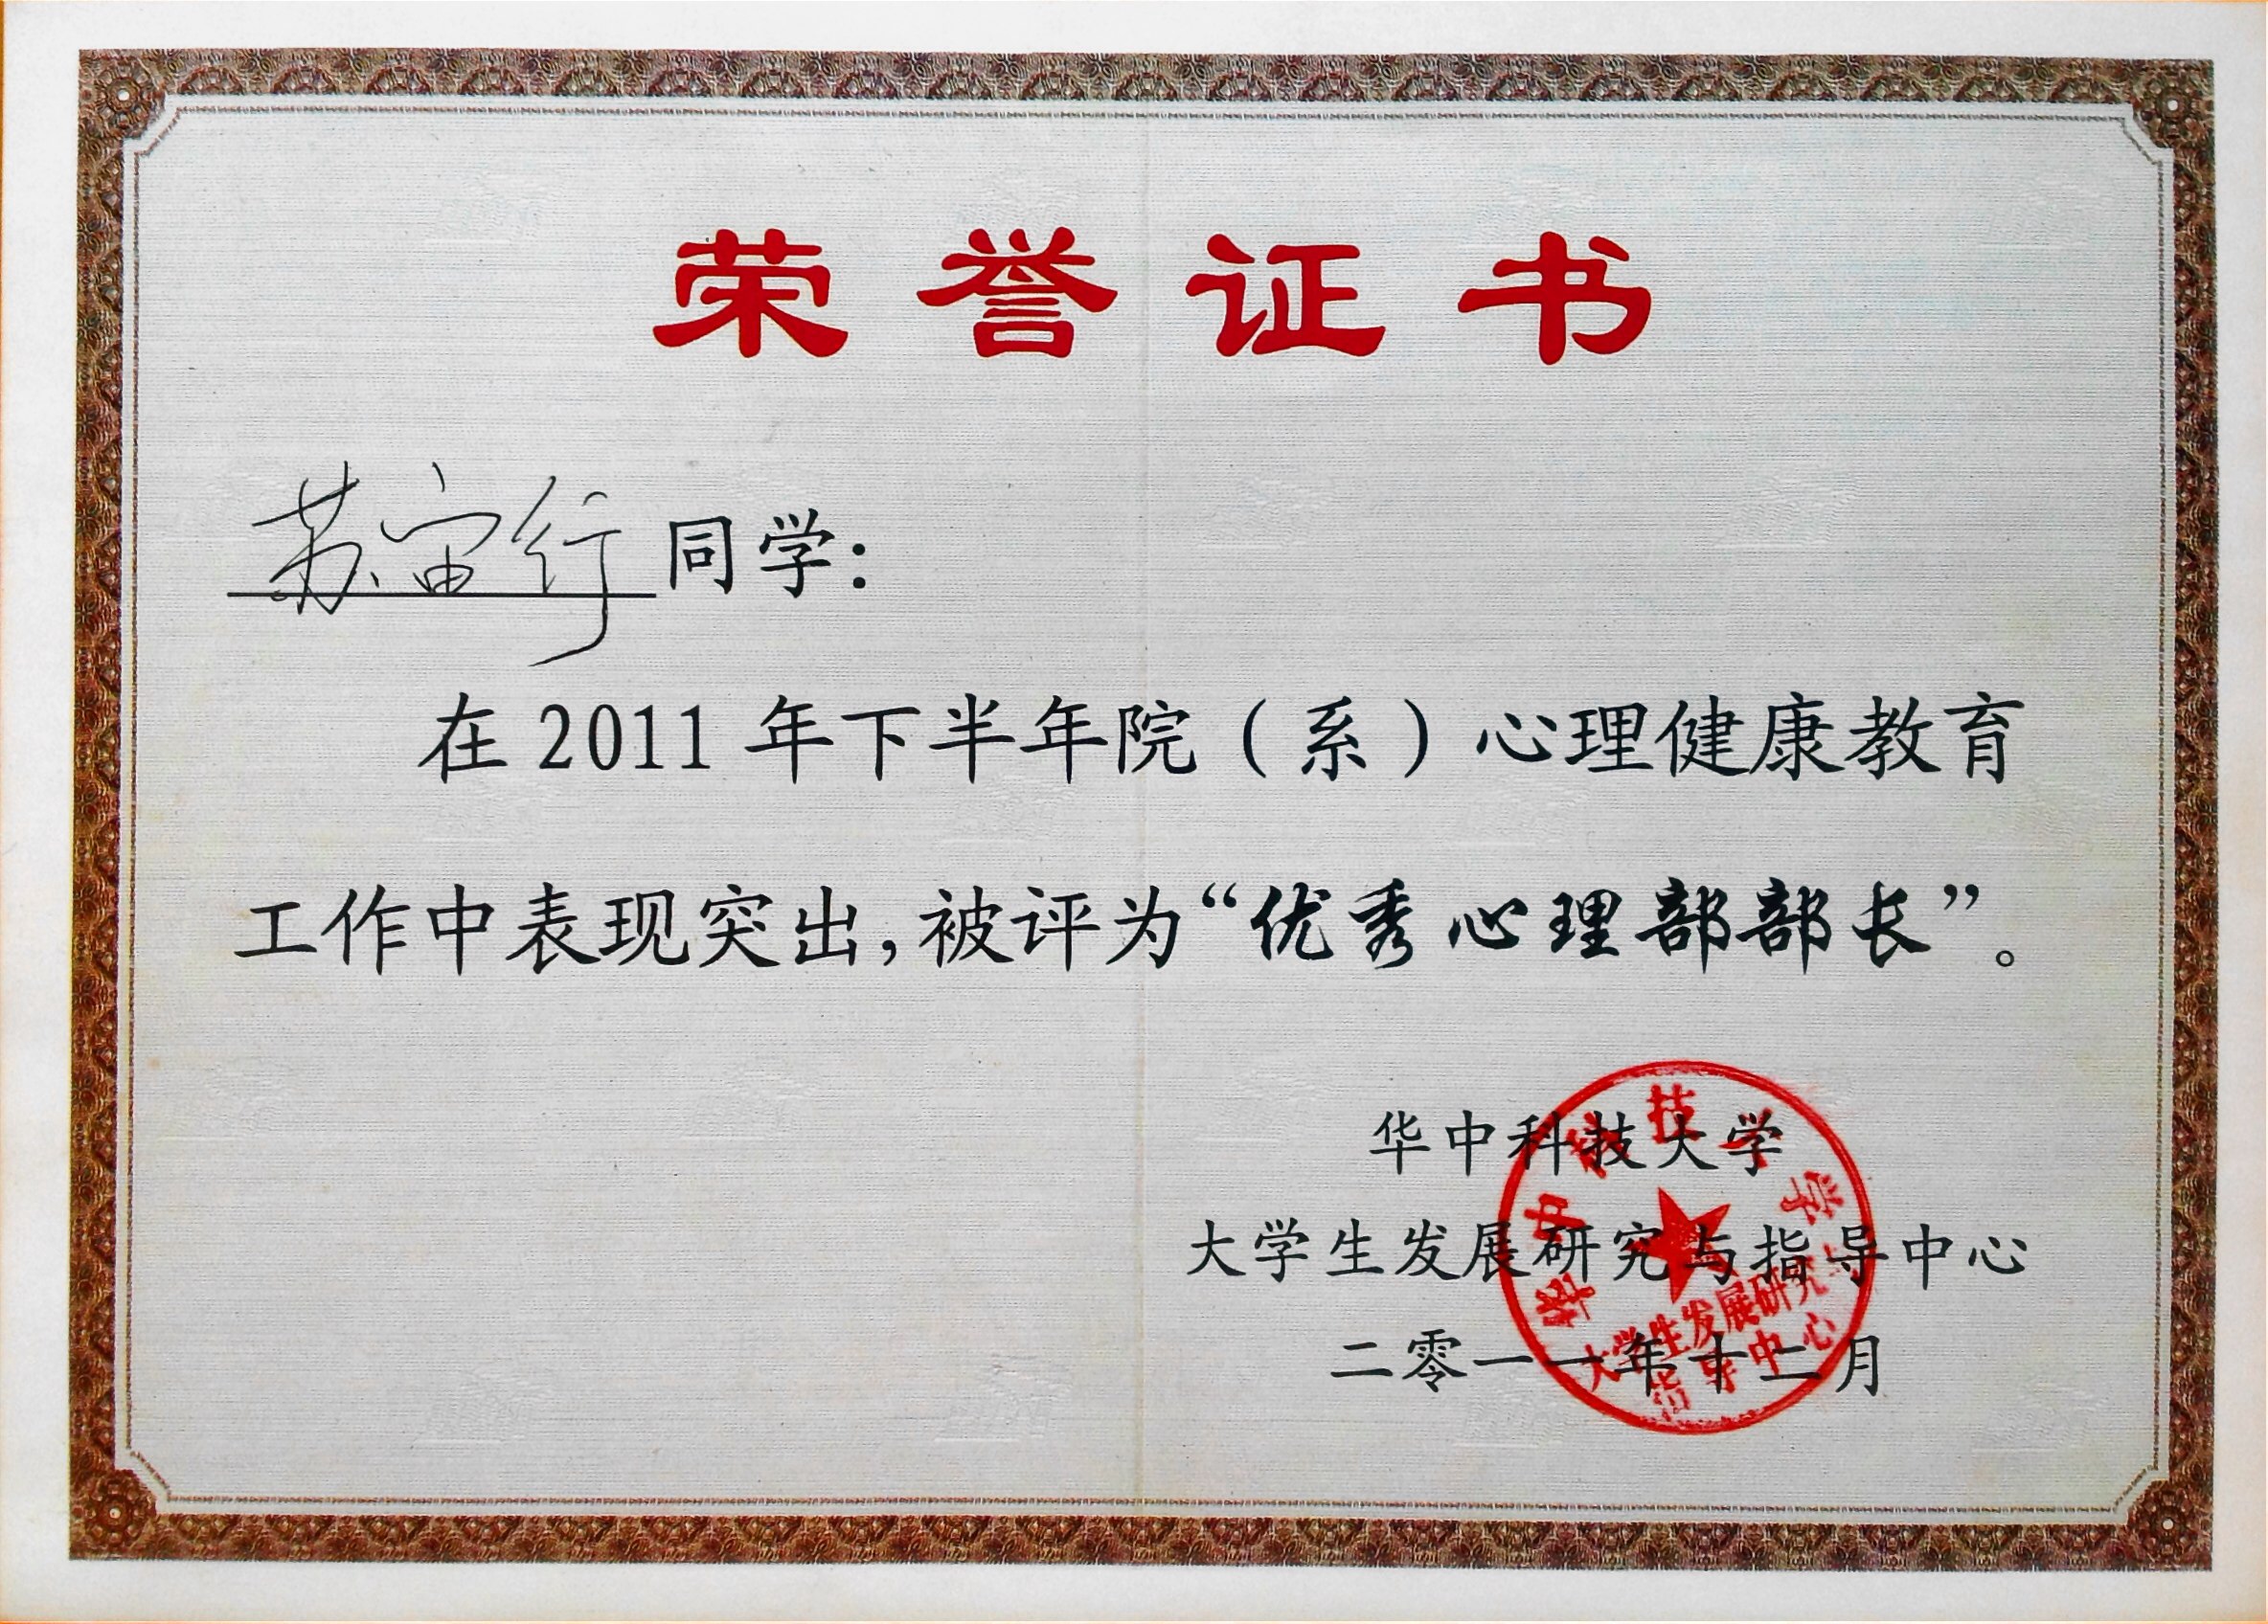 荣誉证书
苏宙行同学：
在2011年下半年院（系）心理健康教育
工作中表现突出，被评为“优秀心理部部长”。
华中科技大学
大学生发展研究与指导中心
二零一一年十二月
华中科技大学学生工作处
大学生发展研究
指导中心